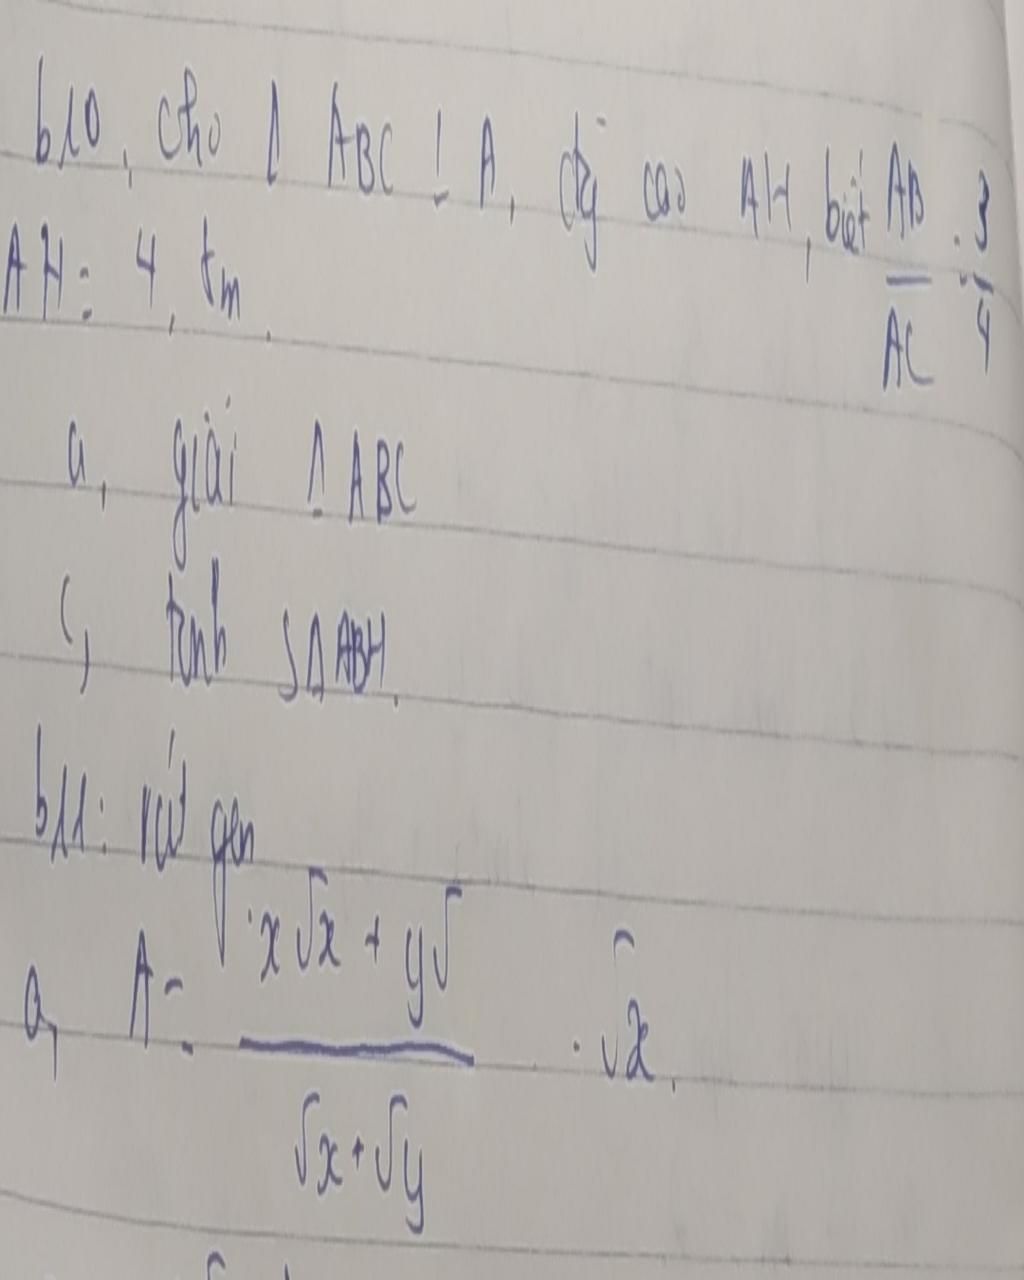 b10, cho Δ ABC ⊥ A, đg cao AH, biết AB/AC = 3/4
AH = 4, tm.
a, giải Δ ABC
c, tính SΔABH.
b11: rút gọn
a, A = (x√x + y√)/(√x + √y) . √x.